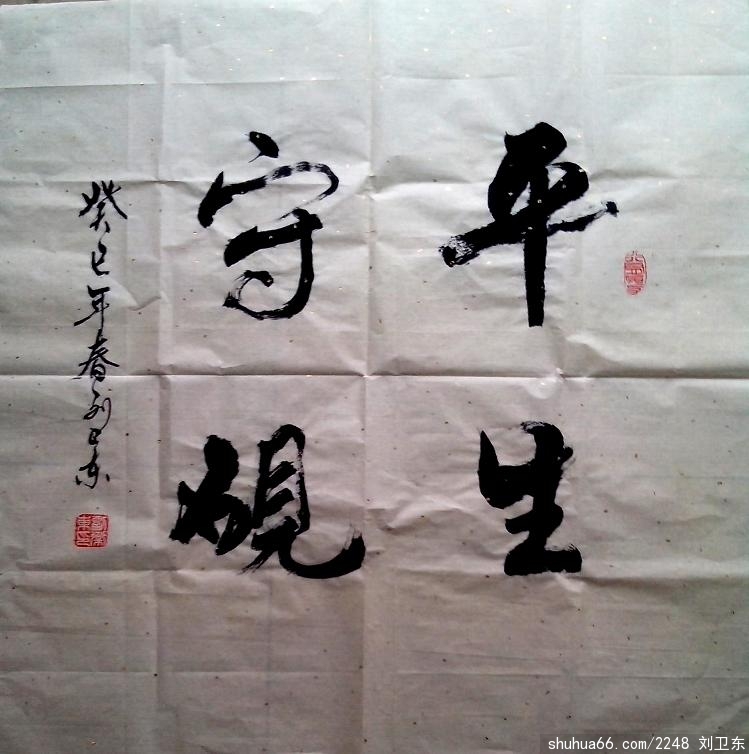 平生
守硯
癸巳年春刘卫东
shuhua66.com/2248 刘卫东